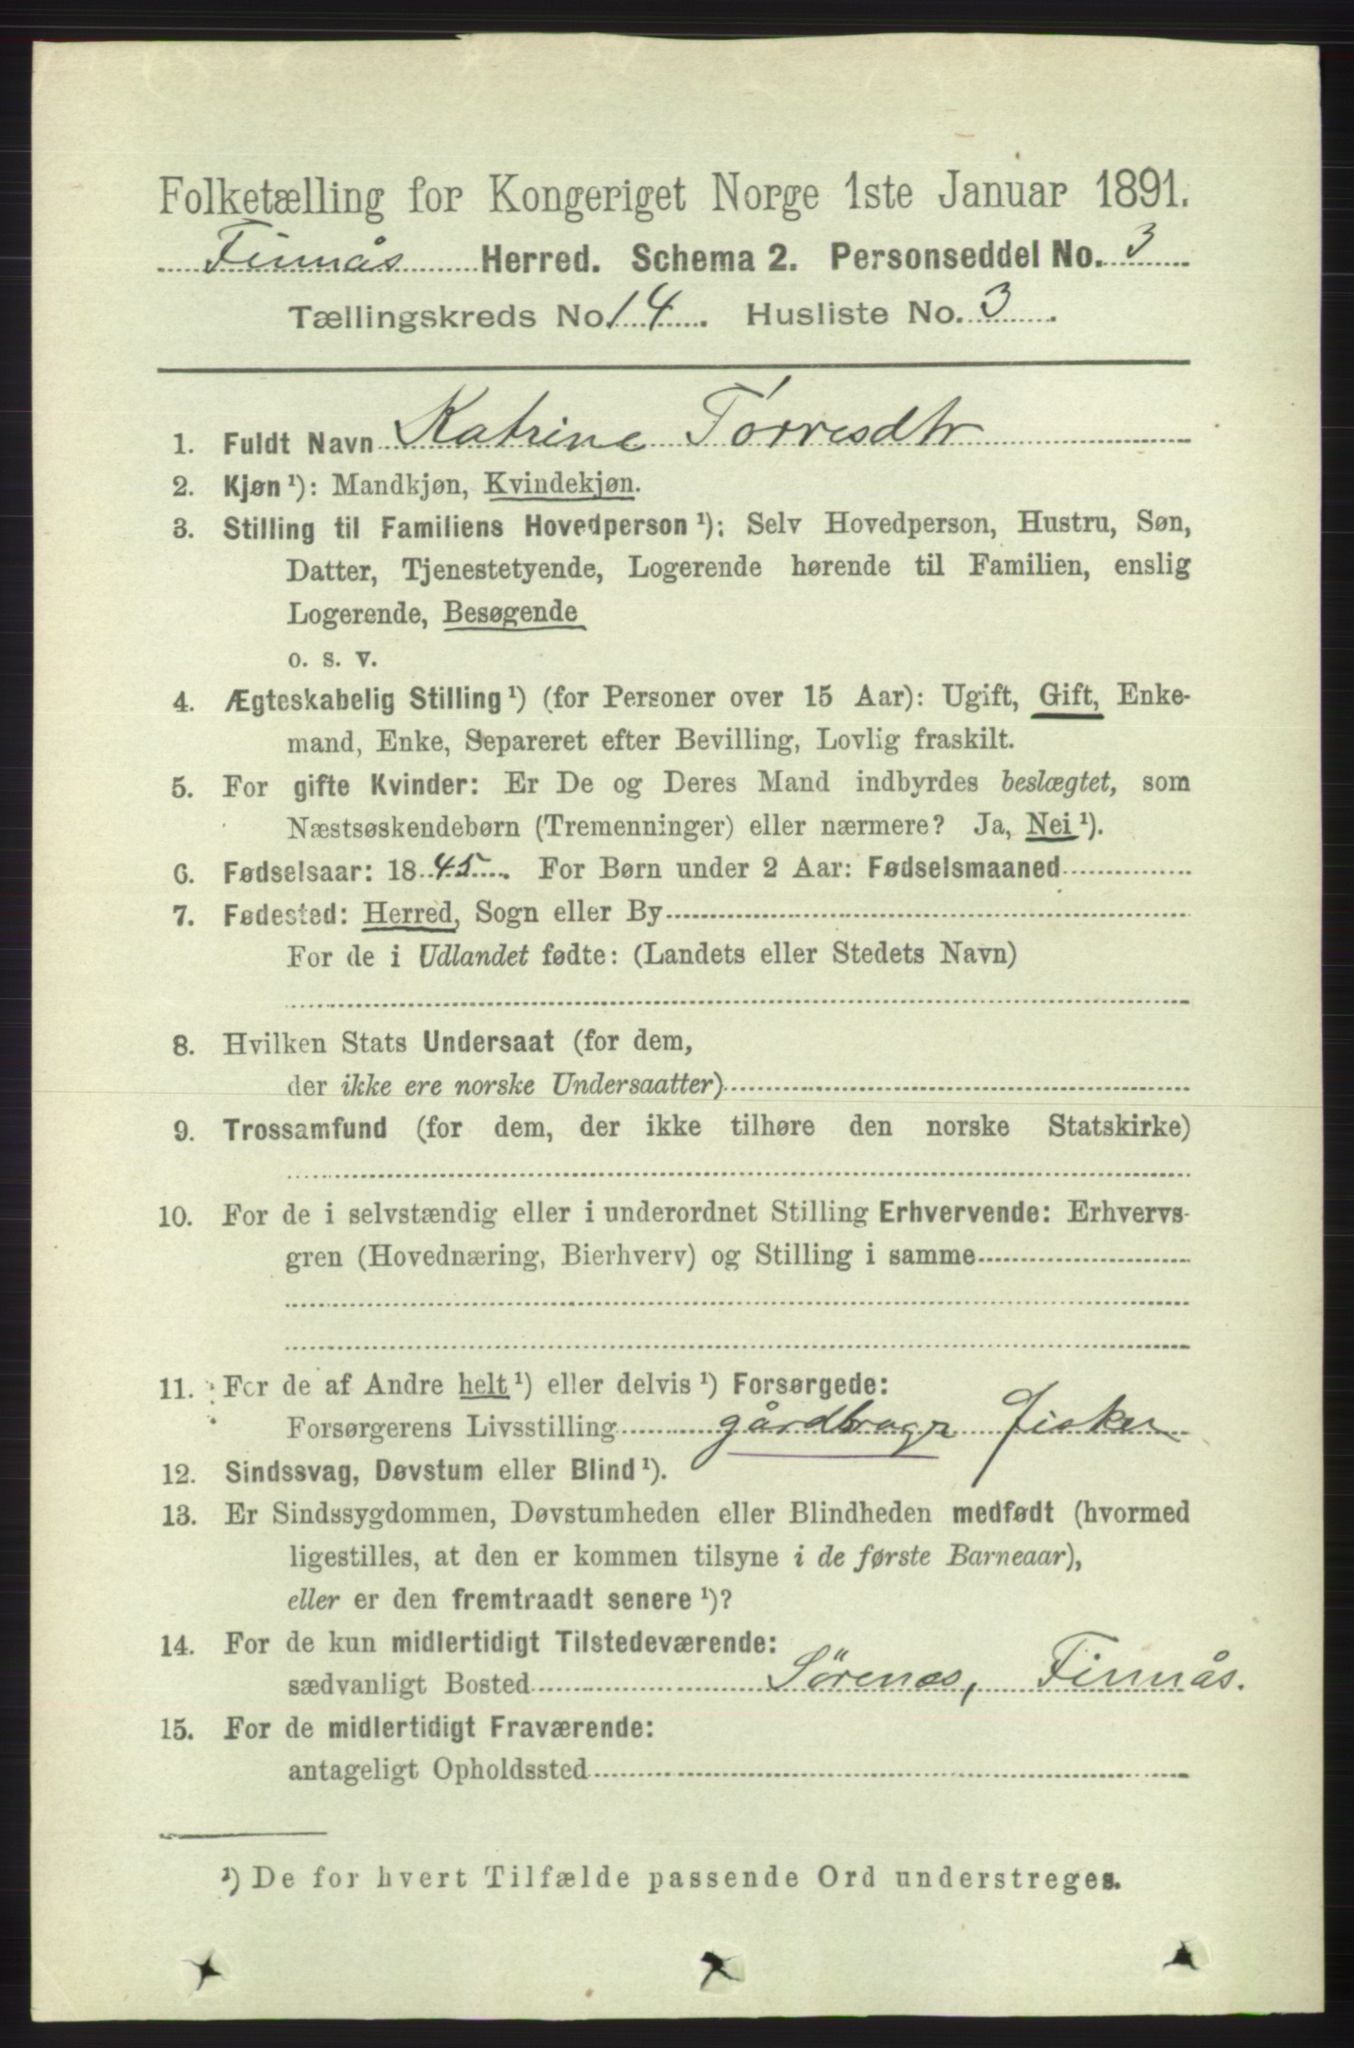 Folketælling for Kongeriget Norge 1ste Januar 1891.
Finnås Herred. Schema 2. Personseddel No. 3
Tællingskreds No. 14. Husliste No. 3.
1. Fuldt Navn Katrine Torresdtr
2. Kjøn ¹): Mandkjøn, Kvindekjøn.
3. Stilling til Familiens Hovedperson ¹): Selv Hovedperson, Hustru, Søn,
Datter, Tjenestetyende, Logerende hørende til Familien, enslig
Logerende, Besøgende
o. s. v.
4. Ægteskabelig Stilling ¹) (for Personer over 15 Aar): Ugift, Gift, Enke-
mand, Enke, Separeret efter Bevilling, Lovlig fraskilt.
5. For gifte Kvinder: Er De og Deres Mand indbyrdes beslægtet, som
Næstsøskendebørn (Tremenninger) eller nærmere? Ja, Nei ¹).
6. Fødselsaar: 1845. For Børn under 2 Aar: Fødselsmaaned
7. Fødested: Herred, Sogn eller By
For de i Udlandet fødte: (Landets eller Stedets Navn)
8. Hvilken Stats Undersaat (for dem,
der ikke ere norske Undersaatter)
9. Trossamfund (for dem, der ikke tilhøre den norske Statskirke)
10. For de i selvstændig eller i underordnet Stilling Erhvervende: Erhvervs-
gren (Hovednæring, Bierhverv) og Stilling i samme
11. For de af Andre helt ¹) eller delvis ¹) Forsørgede:
Forsørgerens Livsstilling gårdbrugr fisker
12. Sindssvag, Døvstum eller Blind ¹).
13. Er Sindssygdommen, Døvstumheden eller Blindheden medfødt (hvormed
ligestilles, at den er kommen tilsyne i de første Barneaar),
eller er den fremtraadt senere ¹)?
14. For de kun midlertidigt Tilstedeværende:
sædvanligt Bosted Sørenæs, Finnås.
15. For de midlertidigt Fraværende:
antageligt Opholdssted
¹) De for hvert Tilfælde passende Ord understreges.